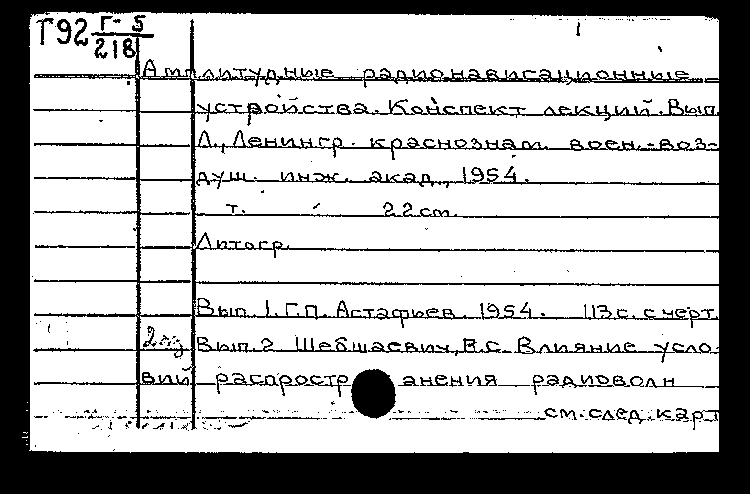 Г92 Г-5
218
Амплитудные радионависационные
устройства. Конспект лекций. Вып.
Л., Ленингр. краснознам. воен.-воз-
душ. инж. акад., 1954.
т. 22 см.
Литогр.
Вып. 1. Г.П. Астафьев. 1954. 113 с. с черт.
2 экз Вып. 2 Шебшаевич, В.С. Влияние усло-
вий распространения радиоволн
см. след. карт